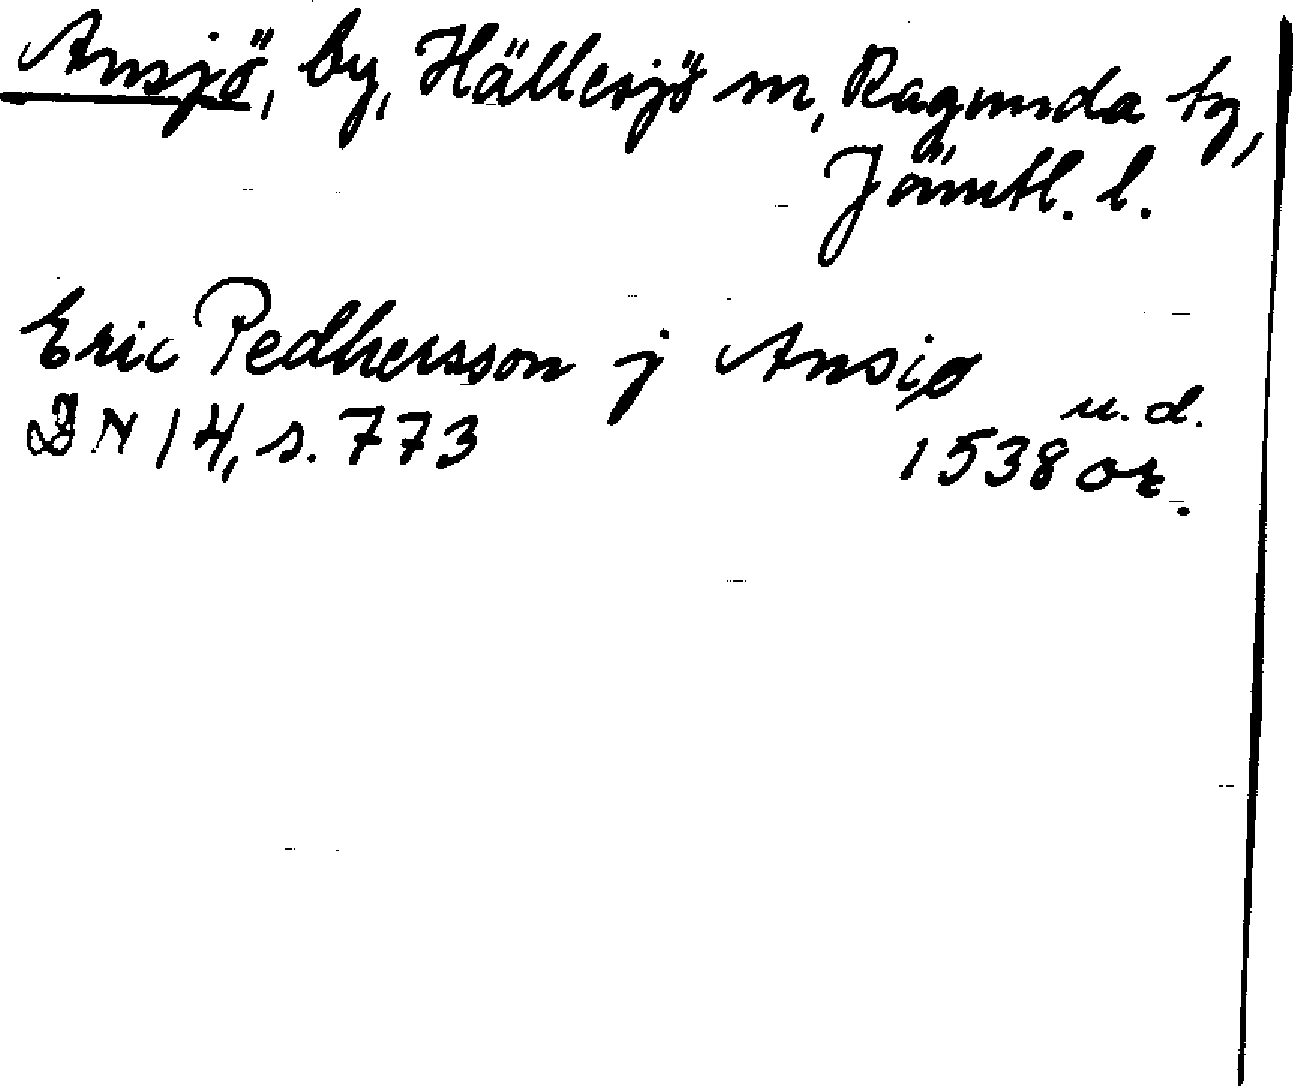 Ansjö, by, Hällesjö sn, Ragunda tg,
Jämtl. l.
Eric Pedhersson j Ansiø
u. d.
DN 14, s. 773 1538 or.